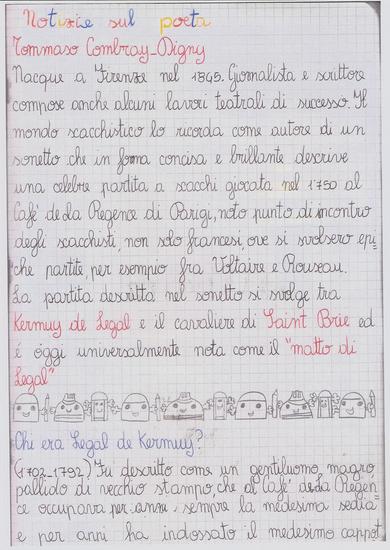 Notizie sul poeta
Tommaso Cambray-Digny
Nacque a Firenze nel 1845. Giornalista e scrittore
compose anche alcuni lavori teatrali di successo. Il
mondo scacchistico lo ricorda come autore di un
sonetto che in forma concisa e brillante descrive
una celebre partita a scacchi giocata nel 1750 al
Cafè de la Regence di Parigi, noto punto di incontro
degli scacchisti, non solo francesi, ove si svolsero epi=
che partite, per esempio fra Voltaire e Rousseau.
La partita descritta nel sonetto si svolge tra
Kermuy de Legal e il cavaliere di Saint Brie ed
é oggi universalmente nota come il "matto di
Legal"
Chi era Legal de Kermuy?
(1702-1792) Fu descritto come un gentiluomo, magro
pallido di vecchio stampo, che al Cafè de la Regen=
ce occupava per anni, sempre la medesima sedia
e per anni ha indossato il medesimo cappot